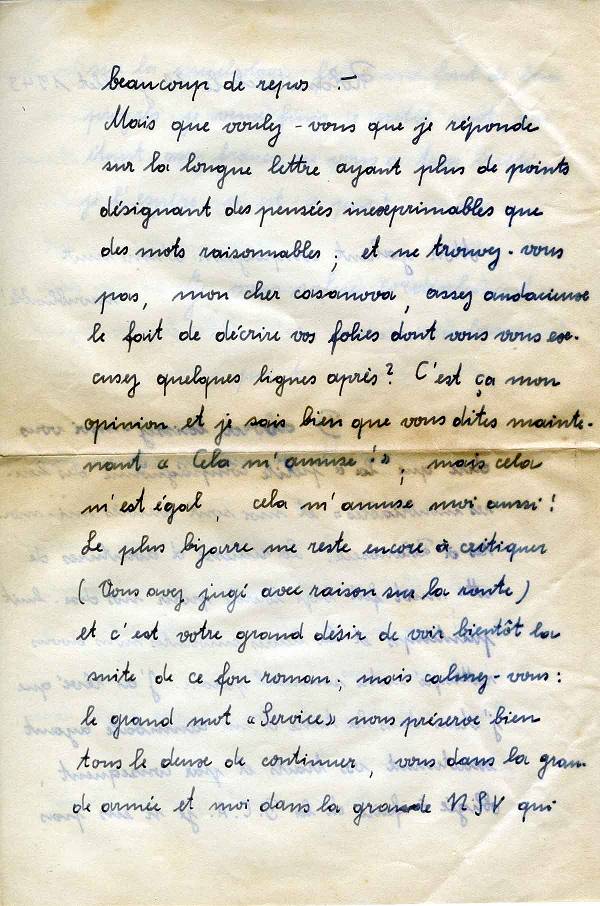 beaucoup de repos. —
Mais que voulez-vous que je réponde
sur la longue lettre ayant plus de points
désignant des pensées inexprimables que
des mots raisonnables; et ne trouvez-vous
pas, mon cher casanova, assez audacieuse
le fait de décrire vos folies dont vous vous ex-
cusez quelques lignes après? C'est ça mon
opinion et je sais bien que vous dites mainte-
nant « Cela m'amuse!», mais cela
m'est égal, cela m'amuse moi aussi!
Le plus bijarre me reste encore à critiquer
(Vous avez jugé avec raison sur la route)
et c'est votre grand désir de voir bientôt la
suite de ce fou roman; mais calmez-vous:
le grand mot «Service» nous préserve bien
tous le deuse de continuer, vous dans la gran-
de armée et moi dans la grande NSV qui